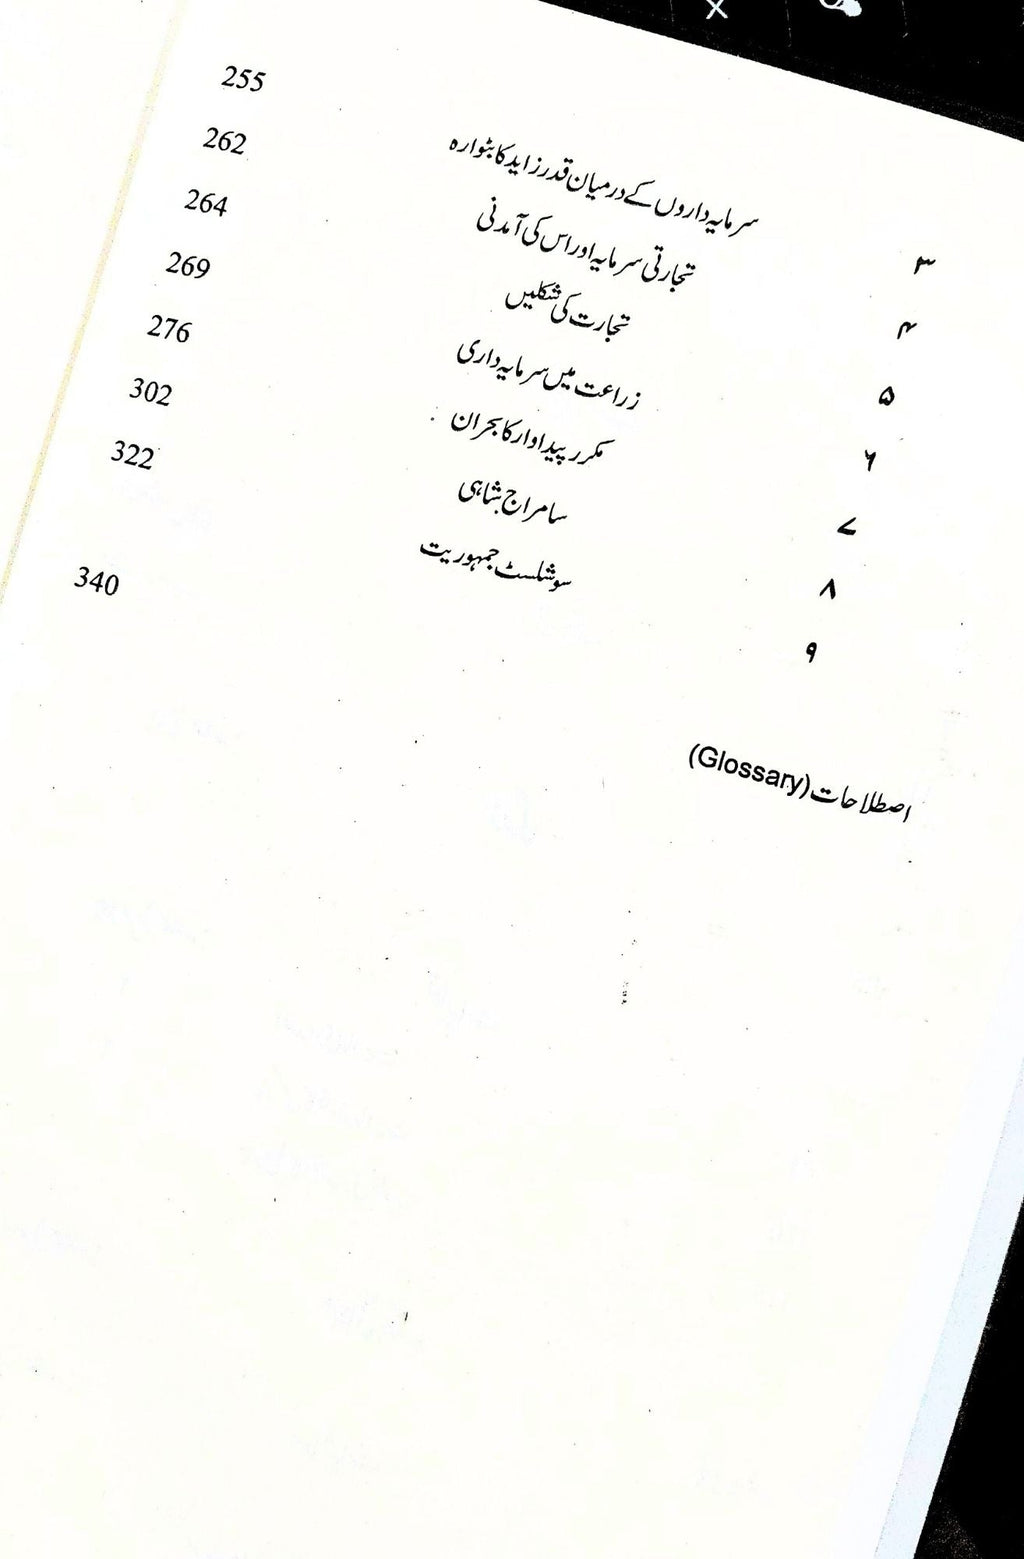 ۳ سرمایہ داروں کے درمیان قدر زاید کا بٹوارہ 255
۴ تجارتی سرمایہ اور اس کی آمدنی 262
۵ تجارت کی شکلیں 264
۶ زراعت میں سرمایہ داری 269
۷ مکرر پیداوار کا بحران 276
۸ سامراج شاہی 302
۹ سوشلسٹ جمہوریت 322
اصطلاحات (Glossary) 340